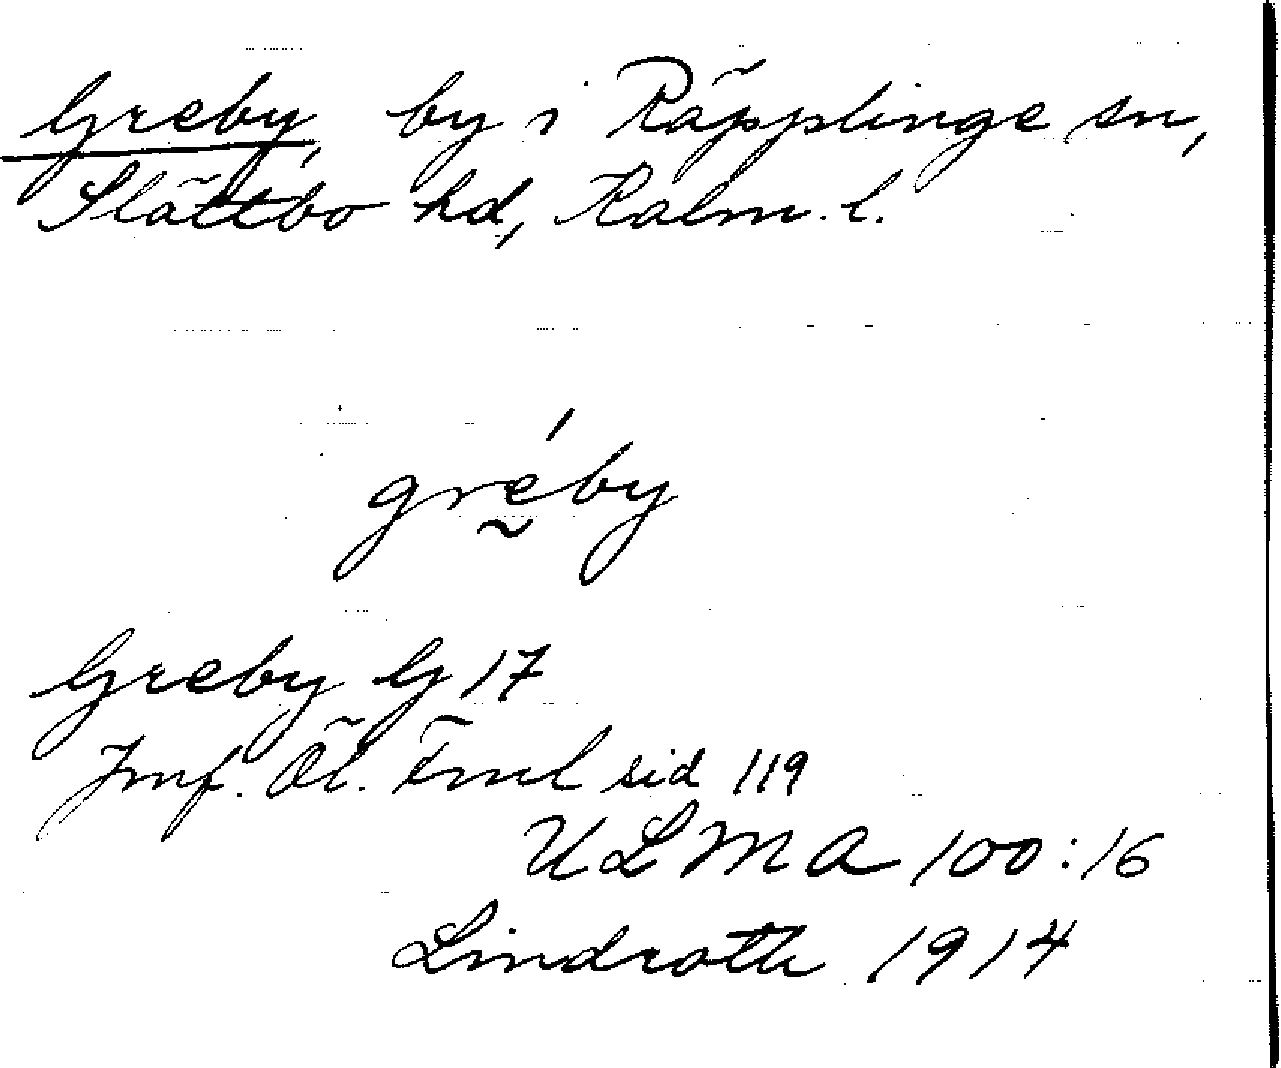 Greby, by i Räpplinge sn,
Slättbo hd, Kalm. l.
grḛ́by
Greby G 17
Jmf. Öl. Fml sid 119
ULMA 100:16
Lindroth 1914